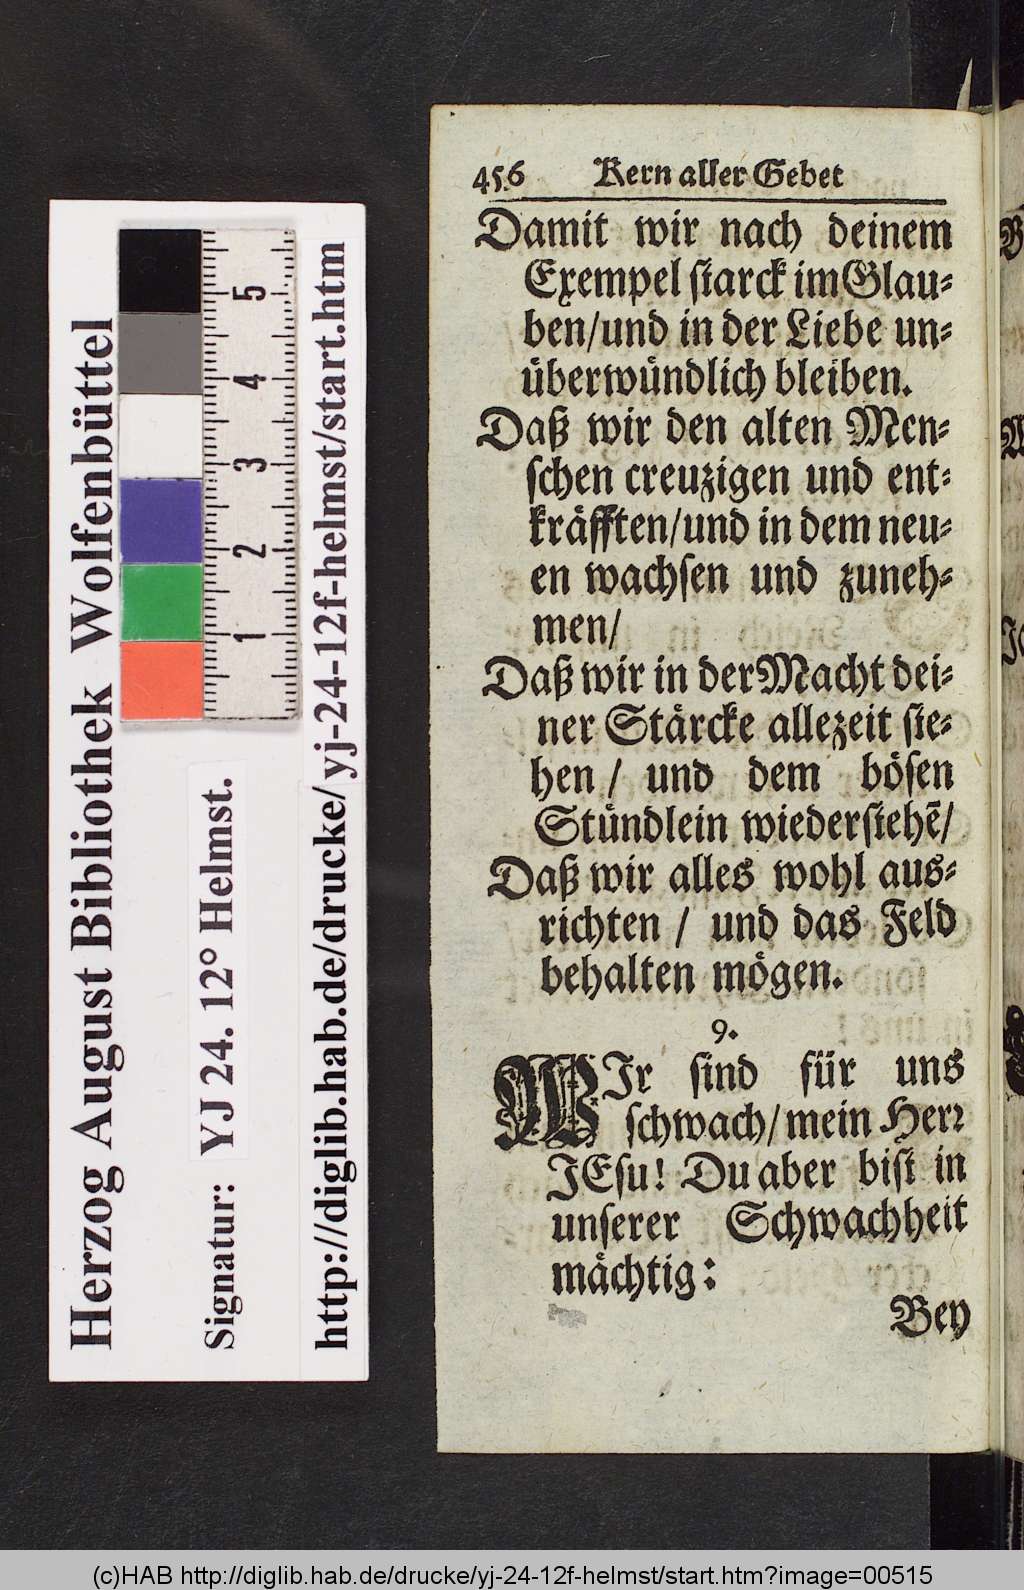 Herzog August Bibliothek Wolfenbüttel
Signatur: YJ 24. 12° Helmst.
http://diglib.hab.de/drucke/yj-24-12f-helmst/start.htm
5
4
3
2
1
456 Kern aller Gebet
Damit wir nach deinem
Exempel starck im Glau⸗
ben/und in der Liebe un⸗
überwündlich bleiben.
Daß wir den alten Men⸗
schen creuzigen und ent⸗
kräfften/und in dem neu⸗
en wachsen und zuneh⸗
men/
Daß wir in der Macht dei⸗
ner Stärcke allezeit ste⸗
hen / und dem bösen
Stündlein wiederstehē/
Daß wir alles wohl aus⸗
richten / und das Feld
behalten mögen.
9.
WIr sind für uns
schwach/mein Herr
JEsu! Du aber bist in
unserer Schwachheit
mächtig:
Bey
(c)HAB http://diglib.hab.de/drucke/yj-24-12f-helmst/start.htm?image=00515